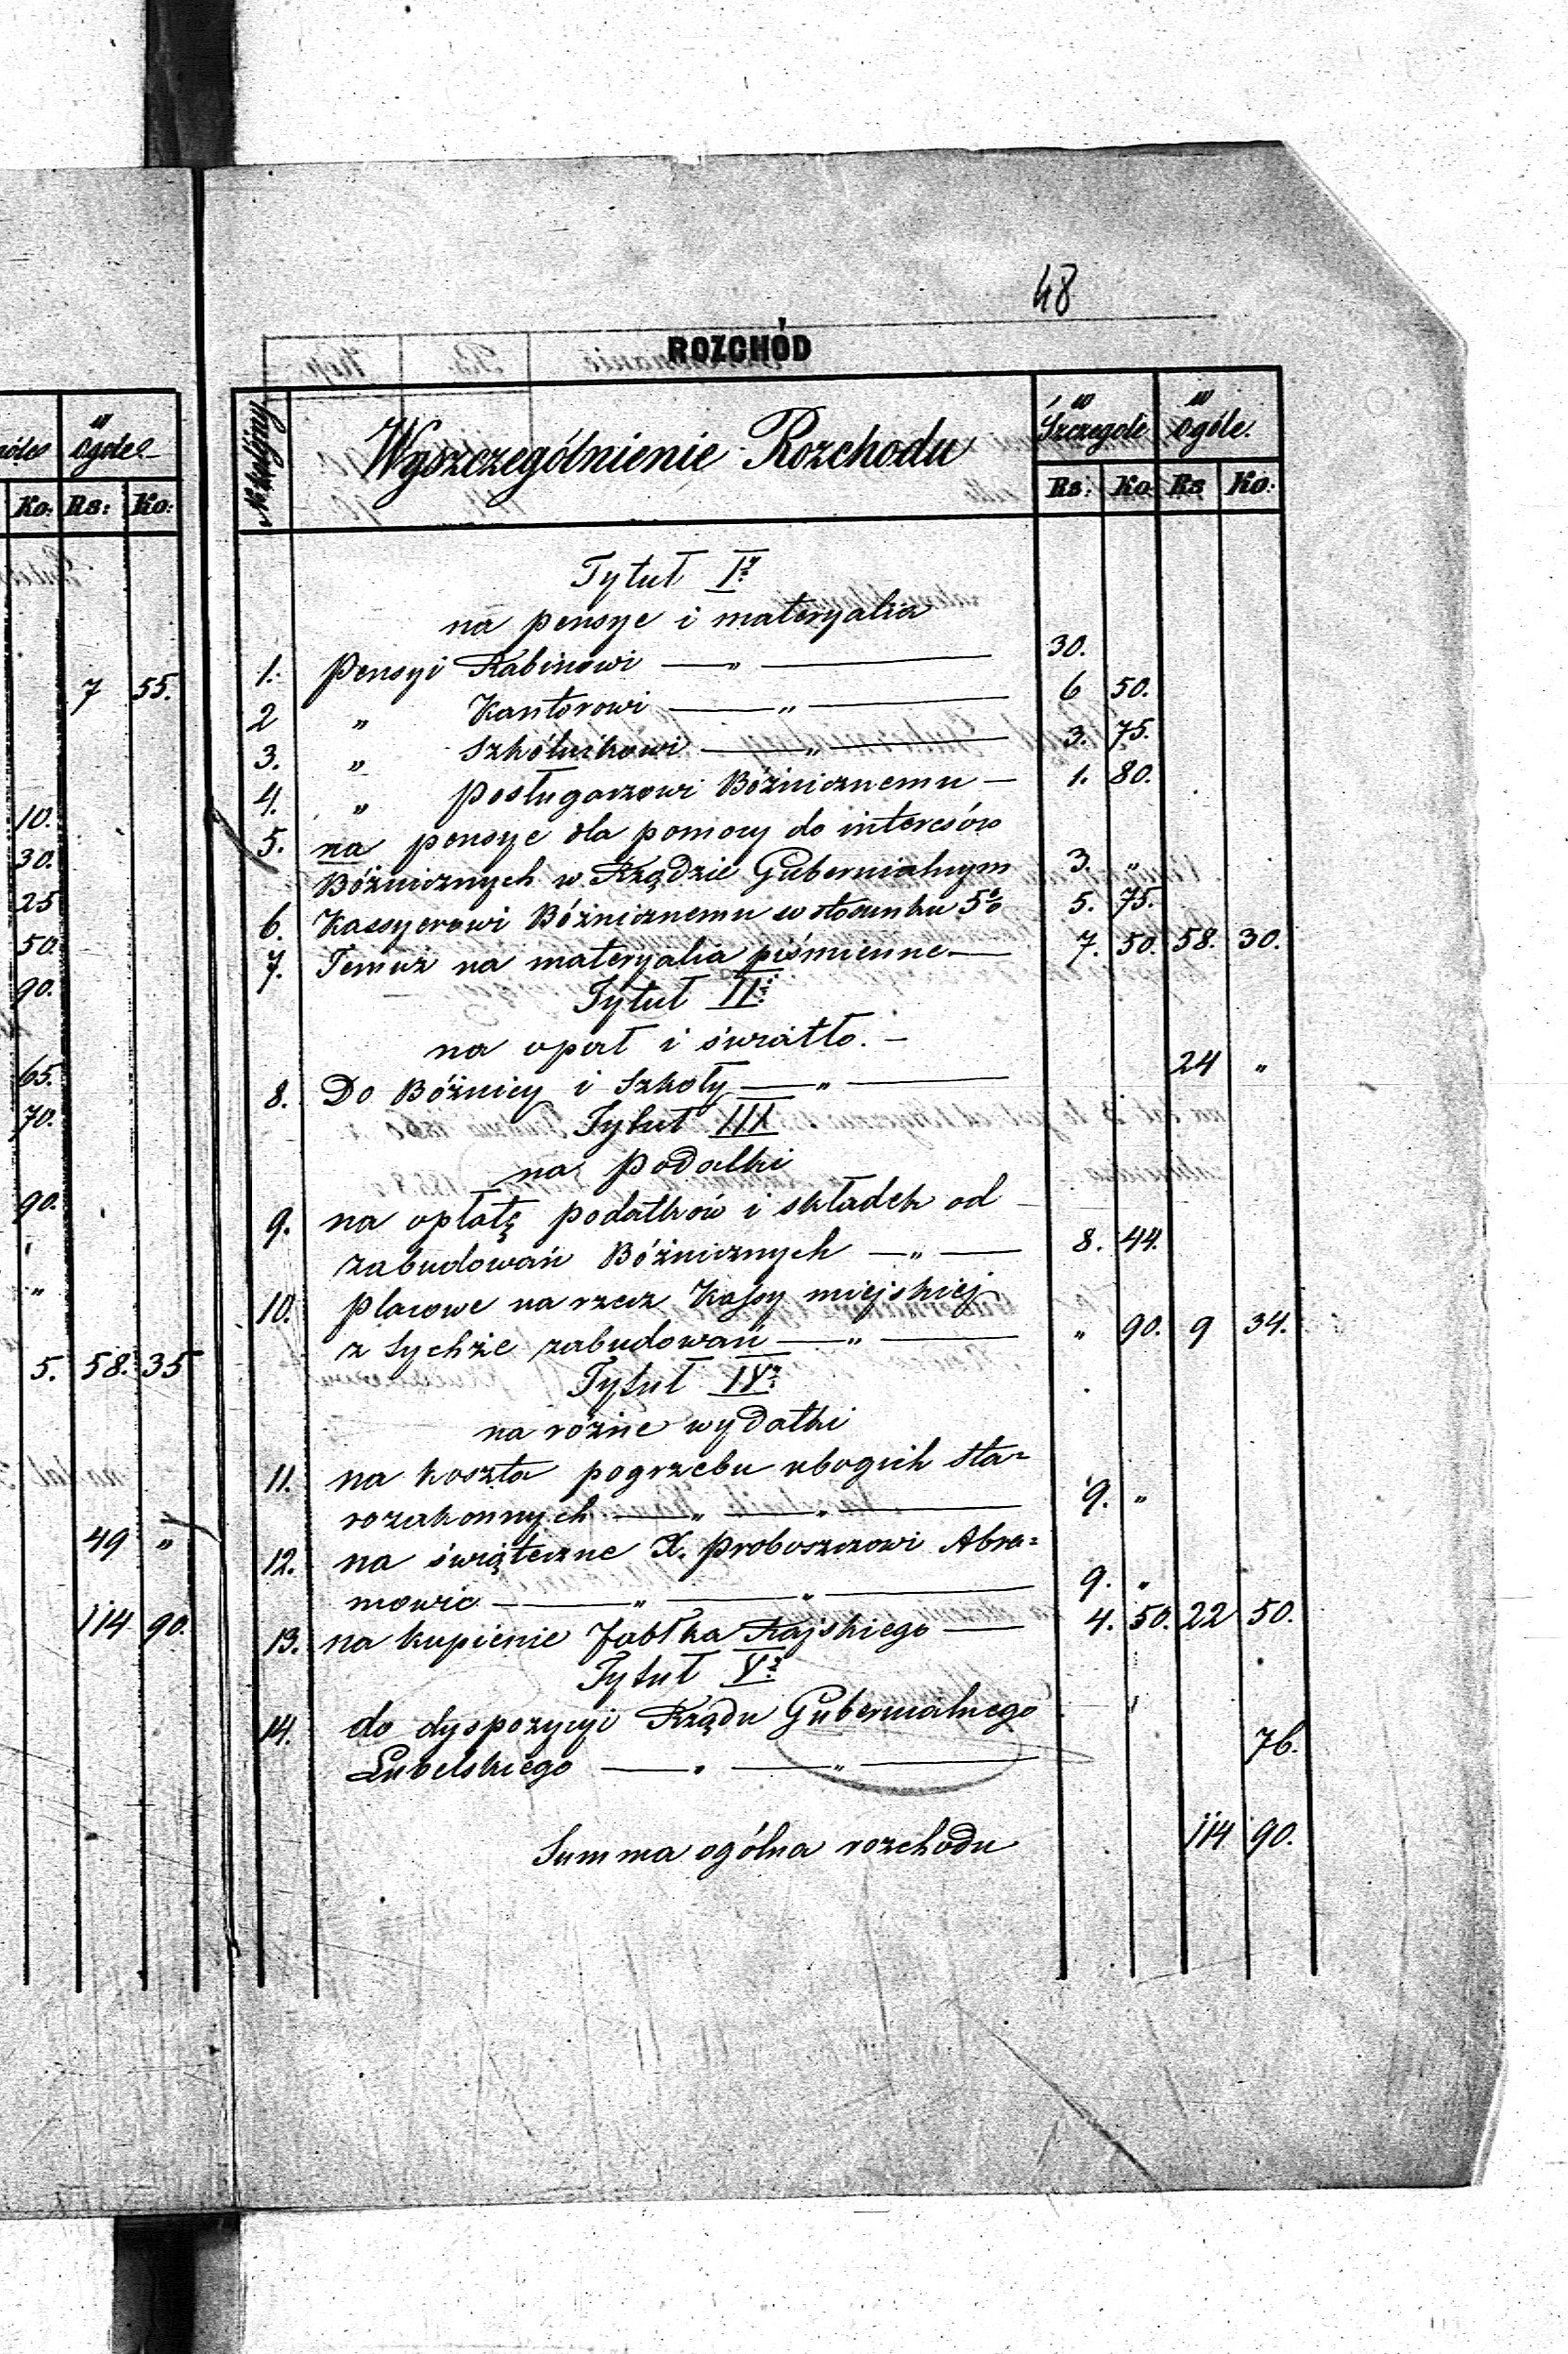 48
ROZCHÓD
w ogóle
Ko: Rs: Ko:
7 55.
10.
30.
25
50.
90.
65.
70.
90.
"
5. 58. 35
49 "
114 90.
No kolejny
Wyszczególnienie Rozchodu
w Szczególe
w ogóle.
Rs: Ko Rs Ko:
Tytuł I.
na pensye i materyalia
1. Pensyi Rabinowi — " — 30.
2 " Kantorowi — " — 6 50.
3. " Szkólnikowi — " — 3. 75.
4. " Posługaczowi Bóżnicznemu — 1. 80.
5. na pensye dla pomocy do interesów
Bóżnicznych w Rządzie Gubernialnym 3. "
6. Kassyerowi Bóżnicznemu w stosunku 5% 5. 75.
7. Temuż na materyalia piśmienne — 7. 50. 58. 30.
Tytuł II.
na opał i światło. —
8. Do Bóżnicy i Szkoły — " — 24 "
Tytuł III
na Podatki
9. na opłatę podatków i składek od
zabudowań Bóżnicznych — " — 8. 44.
10. Placowe na rzecz Kassy miejskiej
z tychże zabudowań — " — " 90. 9 34.
Tytuł IV.
na rożne wydatki
11. na koszta pogrzebu ubogich sta=
rozakonnych — " — " — 9. "
12. na świąteczne X. Proboszczowi Abra=
mowic — " — " — 9. "
13. na kupienie Jabłka Rajskiego — 4. 50. 22 50.
Tytuł V.
14. do dyspozycyi Rządu Gubernialnego
Lubelskiego — " — " — 76.
Summa ogólna rozchodu 114 90.